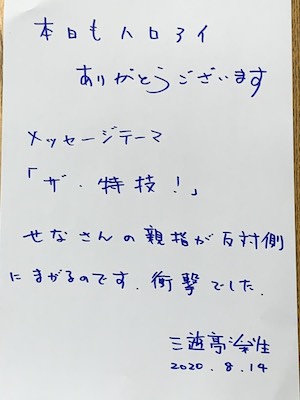 本日もハロアイ
ありがとうございます
メッセージテーマ
「ザ・特技!」
せなさんの親指が反対側
にまがるのです.衝撃でした.
三遊亭絵生
2020.8.14